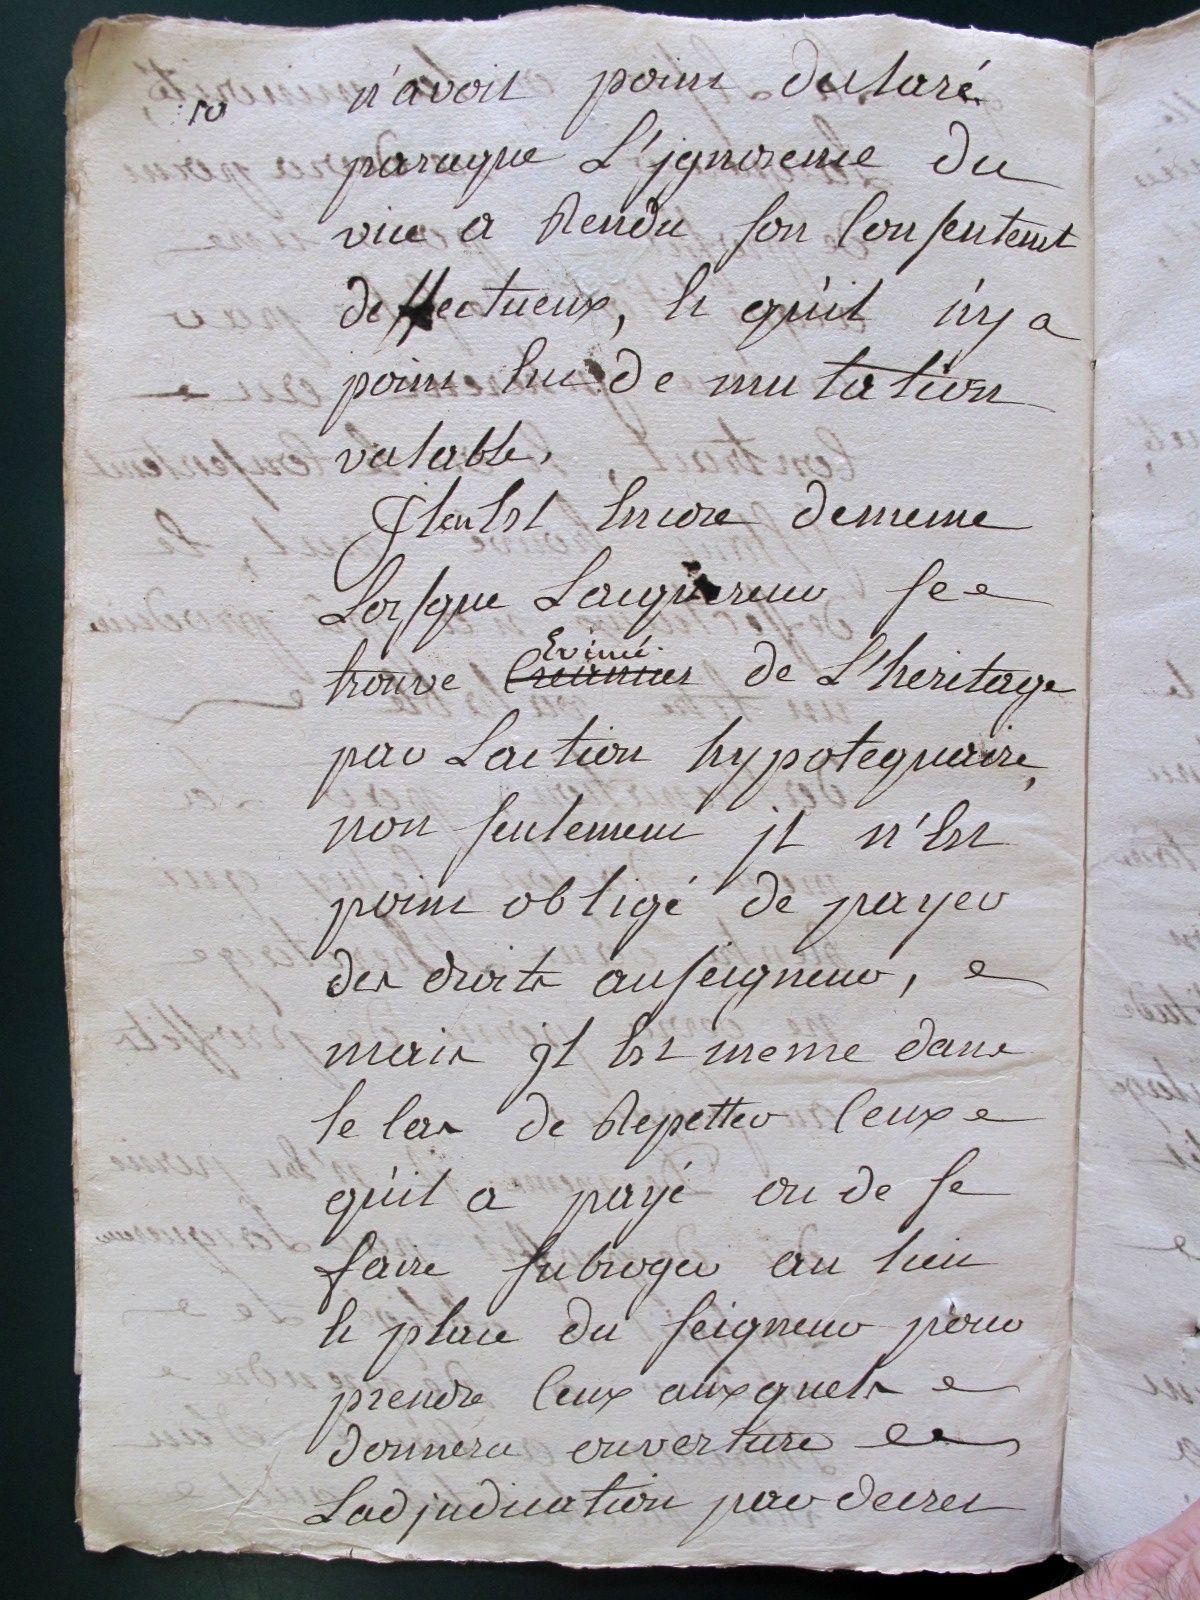 10
n'avoit point declaré
parceque L'jgnorence du
vice a Rendu son Consentemt
deffectueux, Et qu'il n'y a
point Eu de mutation
valable,
Jl en Est Encore de meme
Lorsque Lacquereur se
Evincé.
trouve Creancier de L'heritage
par Laction hypotequaire,
non seulement jl n'Est
point obligé de payer
des droits au seigneur,
mais jl Est meme dans
le Cas de Repetter Ceux
qu'il a payé ou de se
faire subroger au lieu
Et place du seigneur pour
prendre Ceux auxquels
donnera ouverture
Ladjudication par decret